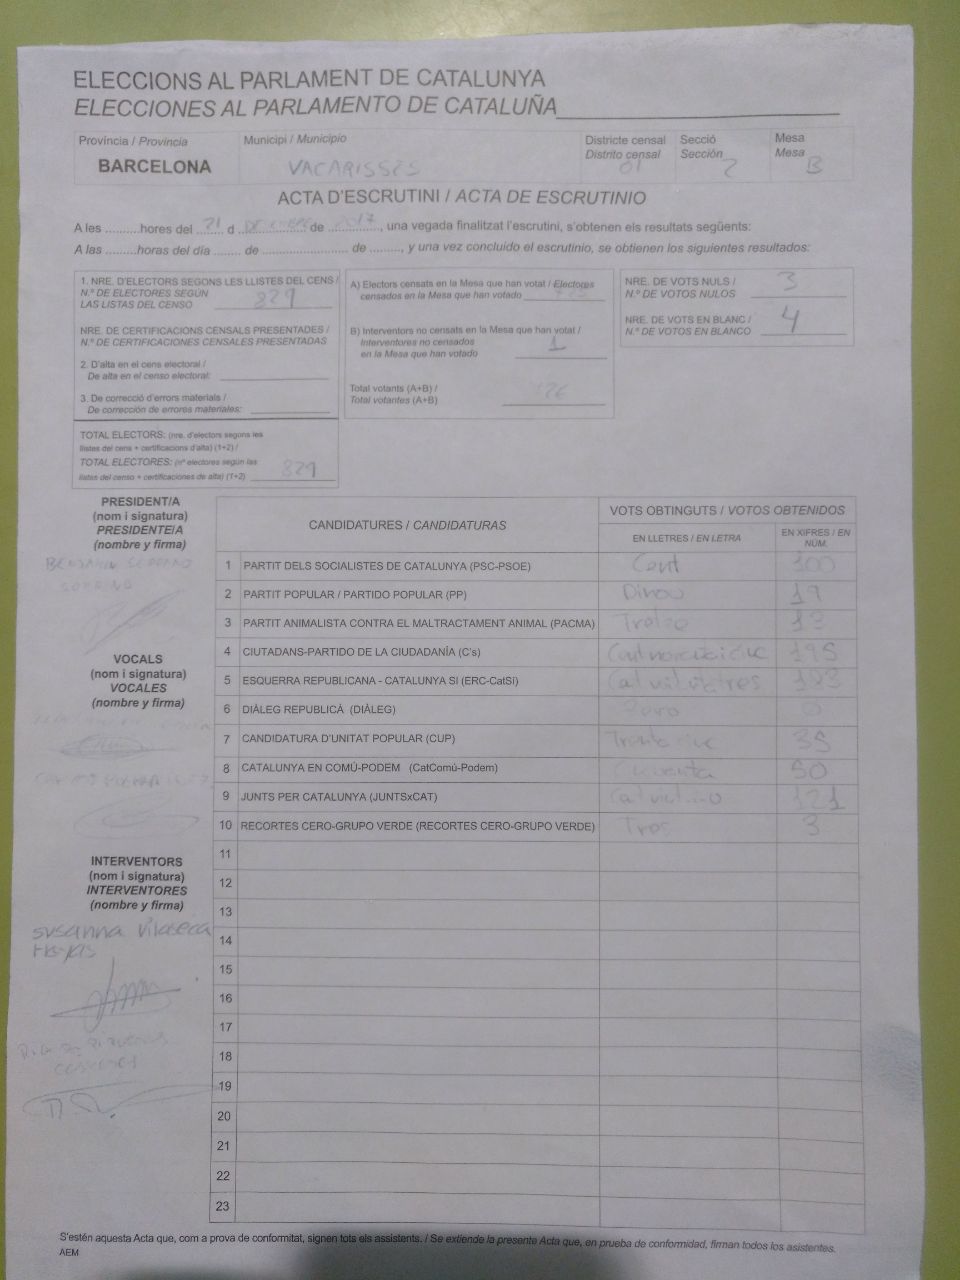 ELECCIONS AL PARLAMENT DE CATALUNYA
ELECCIONES AL PARLAMENTO DE CATALUÑA
Província / Provincia
BARCELONA
Municipi / Municipio
VACARISSES
Districte censal
Distrito censal
01
Secció
Sección
2
Mesa
Mesa
B
ACTA D'ESCRUTINI / ACTA DE ESCRUTINIO
A les .........hores del 21 d de 2017, una vegada finalitzat l'escrutini, s'obtenen els resultats següents:
A las .........horas del día ........ de .......................... de ........., y una vez concluido el escrutinio, se obtienen los siguientes resultados:
1. NRE. D'ELECTORS SEGONS LES LLISTES DEL CENS /
N.º DE ELECTORES SEGÚN
LAS LISTAS DEL CENSO 829
NRE. DE CERTIFICACIONS CENSALS PRESENTADES /
N.º DE CERTIFICACIONES CENSALES PRESENTADAS
2. D'alta en el cens electoral /
De alta en el censo electoral:
3. De correcció d'errors materials /
De corrección de errores materiales:
TOTAL ELECTORS: (nre. d'electors segons les
llistes del cens + certificacions d'alta) (1+2) /
TOTAL ELECTORES: (nº electores según las
listas del censo + certificaciones de alta) (1+2) 829
A) Electors censats en la Mesa que han votat / Electores
censados en la Mesa que han votado
B) Interventors no censats en la Mesa que han votat /
Interventores no censados
en la Mesa que han votado 1
Total votants (A+B) /
Total votantes (A+B)
NRE. DE VOTS NULS /
N.º DE VOTOS NULOS 3
NRE. DE VOTS EN BLANC /
N.º DE VOTOS EN BLANCO 4
PRESIDENT/A
(nom i signatura)
PRESIDENTE/A
(nombre y firma)
BENJAMIN SERRANO
VOCALS
(nom i signatura)
VOCALES
(nombre y firma)
INTERVENTORS
(nom i signatura)
INTERVENTORES
(nombre y firma)
susanna vilaseca
CANDIDATURES / CANDIDATURAS
VOTS OBTINGUTS / VOTOS OBTENIDOS
EN LLETRES / EN LETRA
EN XIFRES / EN NÚM.
1 PARTIT DELS SOCIALISTES DE CATALUNYA (PSC-PSOE) Cent 100
2 PARTIT POPULAR / PARTIDO POPULAR (PP) Dinou 19
3 PARTIT ANIMALISTA CONTRA EL MALTRACTAMENT ANIMAL (PACMA) 13
4 CIUTADANS-PARTIDO DE LA CIUDADANÍA (C's) 195
5 ESQUERRA REPUBLICANA - CATALUNYA SÍ (ERC-CatSí) 123
6 DIÀLEG REPUBLICÀ (DIÀLEG) 0
7 CANDIDATURA D'UNITAT POPULAR (CUP) 35
8 CATALUNYA EN COMÚ-PODEM (CatComú-Podem) 50
9 JUNTS PER CATALUNYA (JUNTSxCAT) 121
10 RECORTES CERO-GRUPO VERDE (RECORTES CERO-GRUPO VERDE) Tres 3
11
12
13
14
15
16
17
18
19
20
21
22
23
S'estén aquesta Acta que, com a prova de conformitat, signen tots els assistents. / Se extiende la presente Acta que, en prueba de conformidad, firman todos los asistentes.
AEM